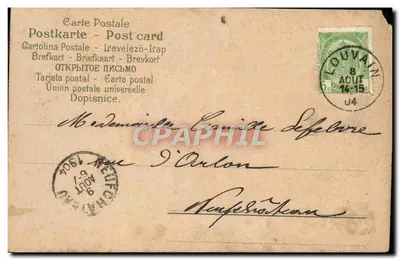 Carte Postale
Postkarte - Post card
Cartolina Postale - Irevelező-Irap
Brefkort - Briefkaart - Brevkort
ОТКРЫТОЕ ПИСЬМО
Tarjeta postal - Carto postal
Union postale universelle
Dopisnice.
LOUVAIN
8
AOUT
14-15
04
CPHPH.COM
Mademoiselle Camille Lefebvre
rue d'Arlon
Neufchâteau
NEUFCHATEAU
9
AOUT
1904